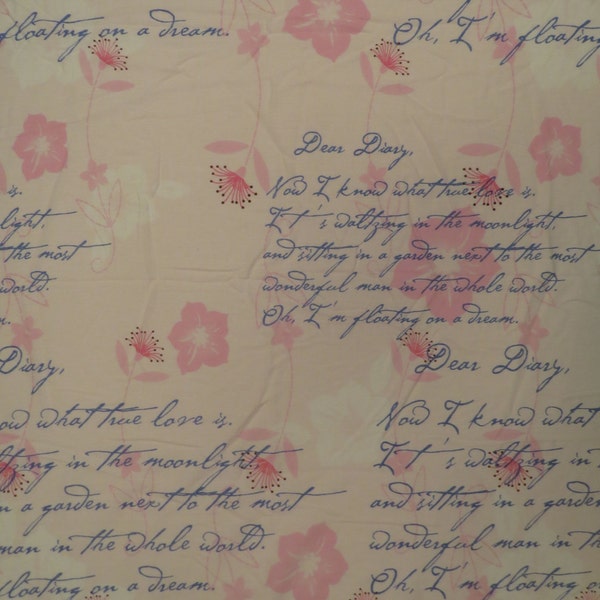 floating on a dream.
Oh, I'm floating
Dear Diary,
Now I know what true love is.
It's waltzing in the moonlight,
and sitting in a garden next to the most
wonderful man in the whole world.
Oh, I'm floating on a dream.
is.
light,
to the most
world.
m.
Diary,
now what true love is.
ltzing in the moonlight,
n a garden next to the most
man in the whole world.
floating on a dream.
Dear Diary,
Now I know what
It's waltzing in
and sitting in a garden
wonderful man in the
Oh, I'm floating o